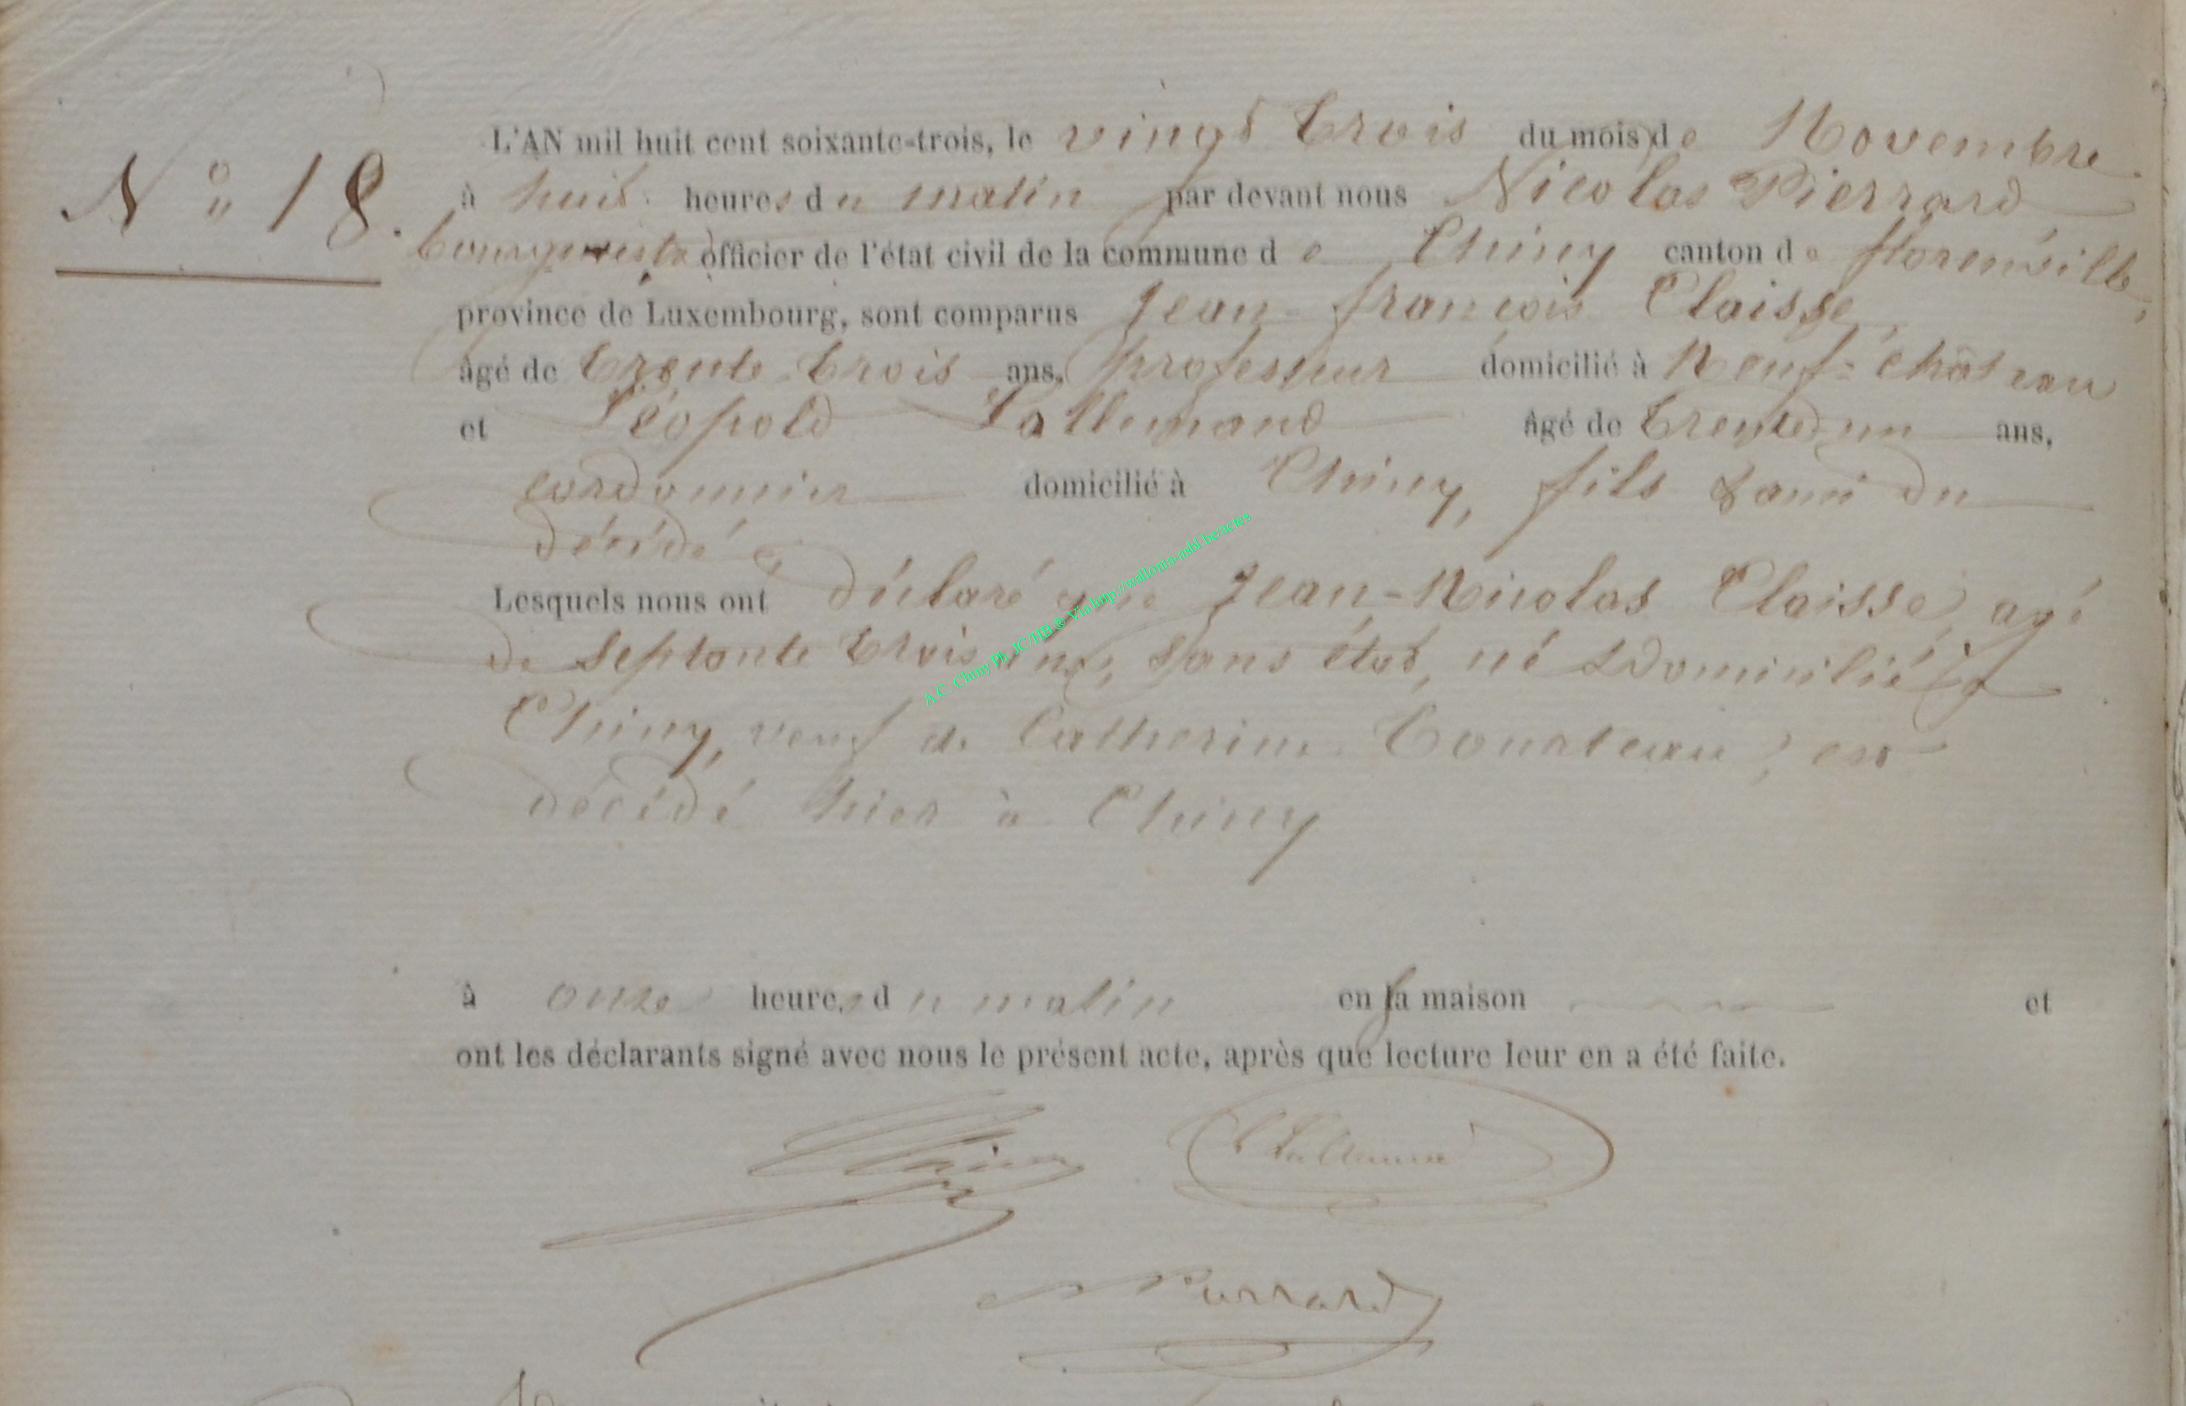 L'AN mil huit cent soixante-trois, le vingt trois du mois de Novembre
N° 18.
à huit heures du matin par devant nous Nicolas Pierrard
bourgmestre officier de l'état civil de la commune de Chiny canton de florenville,
province de Luxembourg, sont comparus Jean-françois Claisse,
âgé de trente-trois ans, professeur domicilié à Neuf-château
et Léopold Lallemand âgé de trente un ans,
cordonnier domicilié à Chiny, fils & ami du
décédé
Lesquels nous ont déclaré que Jean-Nicolas Claisse, agé
de septante trois ans, sans état, né & domicilié à
Chiny, veuf de Catherine Tourteau, est
décédé hier à Chiny
à onze heures du matin en sa maison et
ont les déclarants signé avec nous le présent acte, après que lecture leur en a été faite.
Claisse
L Lallemand
N Pierrard
A.C. Chiny Ph. JC/HB © Via http://wallonia-asbl.be/actes